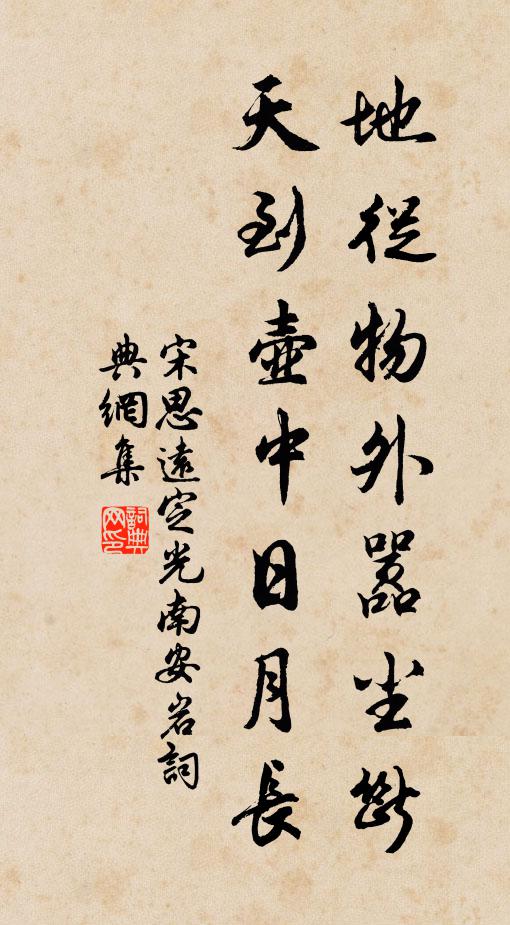 地從物外嚣尘斷
天到壺中日月長
宋思遠定光南安岩詞
典網集
詞典网印